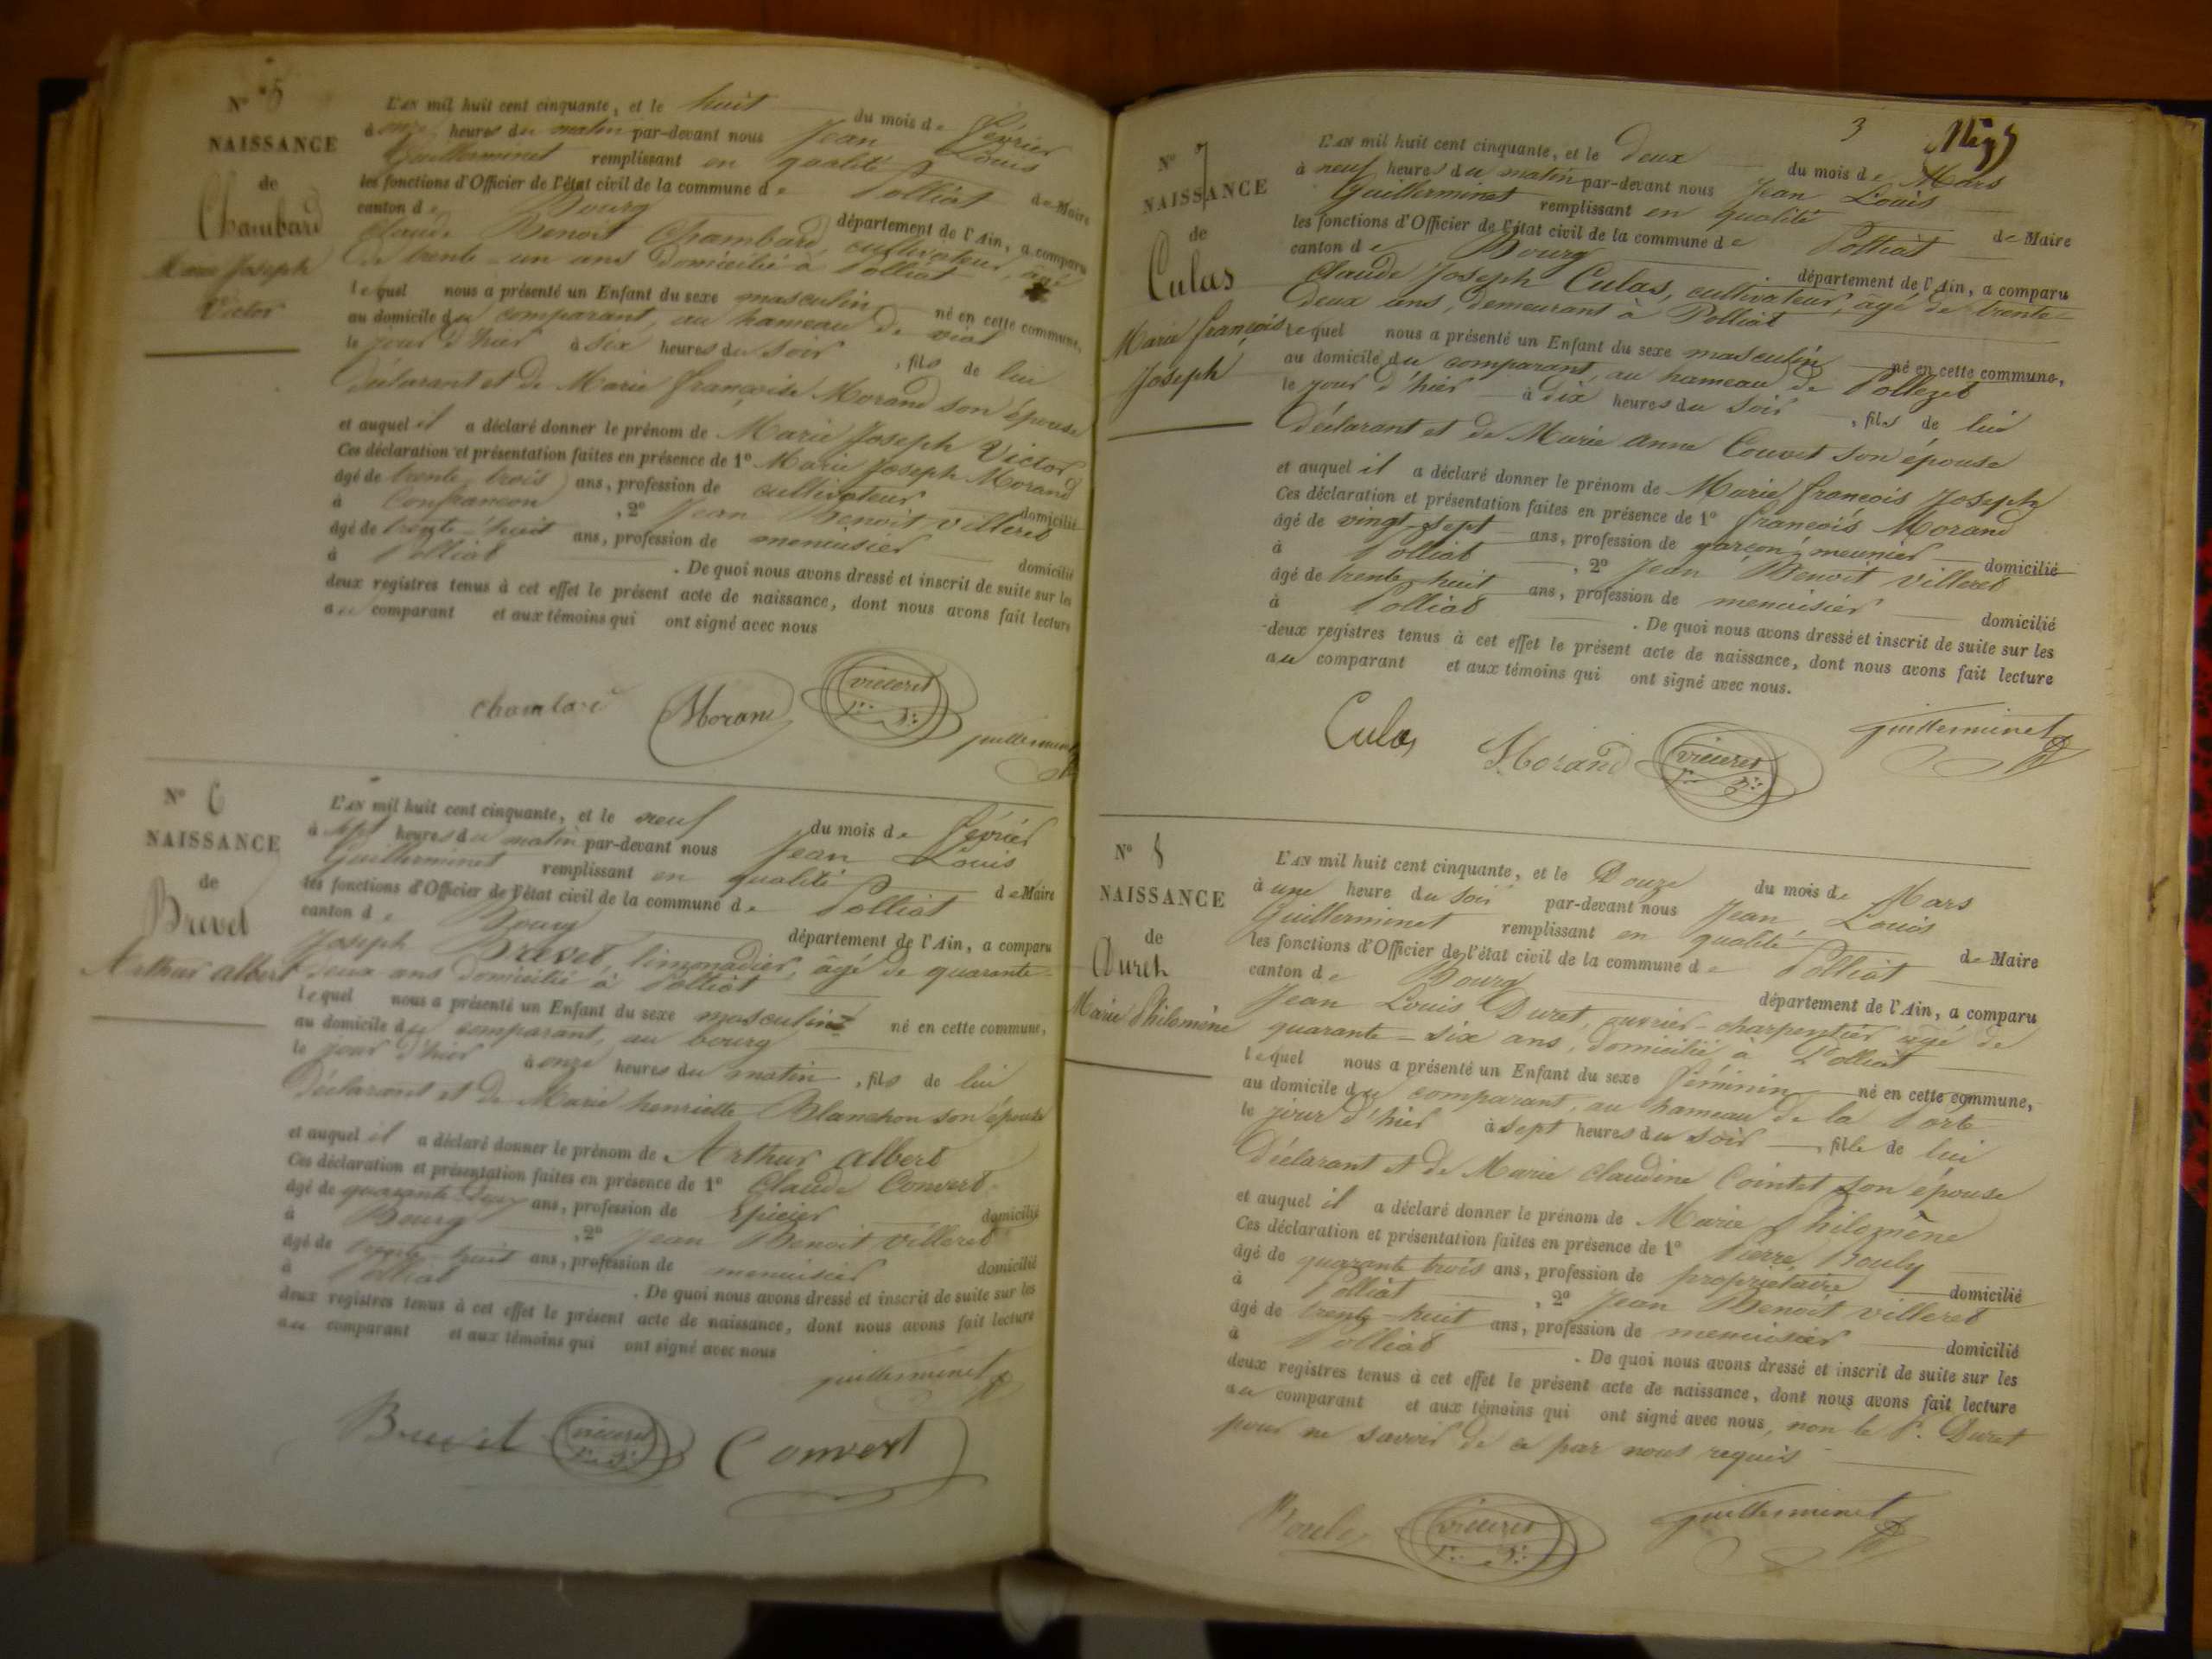 N° 5
NAISSANCE
de
Chambard
Marie Joseph
Victor
L'AN mil huit cent cinquante, et le huit du mois de février
à onze heures du matin par-devant nous Jean Louis
Guillerminet remplissant en qualité de Maire
les fonctions d'Officier de l'état civil de la commune de Polliat
canton de Bourg département de l'Ain, a comparu
Claude Benoit Chambard, cultivateur, âgé
de trente-un ans domicilié à Polliat
lequel nous a présenté un Enfant du sexe masculin né en cette commune,
au domicile du comparant, au hameau de viot
le jour d'hier à six heures du soir, fils de lui
déclarant et de Marie françoise Morand son épouse
et auquel il a déclaré donner le prénom de Marie Joseph Victor
Ces déclaration et présentation faites en présence de 1° Marie Joseph Morand
âgé de trente trois ans, profession de cultivateur domicilié
à Confrancon, 2° Jean Benoit Villeret
âgé de trente-huit ans, profession de menuisier domicilié
à Polliat. De quoi nous avons dressé et inscrit de suite sur les
deux registres tenus à cet effet le présent acte de naissance, dont nous avons fait lecture
au comparant et aux témoins qui ont signé avec nous
Chambard Morand Villeret guillerminet
N° 6
NAISSANCE
de
Brevet
Arthur albert
L'AN mil huit cent cinquante, et le neuf du mois de février
à sept heures du matin par-devant nous Jean Louis
Guillerminet remplissant en qualité de Maire
les fonctions d'Officier de l'état civil de la commune de Polliat
canton de Bourg département de l'Ain, a comparu
Joseph Brevet, limonadier, âgé de quarante-
deux ans domicilié à Polliat
lequel nous a présenté un Enfant du sexe masculin né en cette commune,
au domicile du comparant, au bourg
le jour d'hier à onze heures du matin, fils de lui
déclarant et de Marie henriette Blanchon son épouse
et auquel il a déclaré donner le prénom de Arthur albert
Ces déclaration et présentation faites en présence de 1° Claude Convert
âgé de quarante-deux ans, profession de Epicier domicilié
à Bourg, 2° Jean Benoit Villeret
âgé de trente-huit ans, profession de menuisier domicilié
à Polliat. De quoi nous avons dressé et inscrit de suite sur les
deux registres tenus à cet effet le présent acte de naissance, dont nous avons fait lecture
au comparant et aux témoins qui ont signé avec nous
guillerminet
Brevet Villeret Convert
3
N° 7
NAISSANCE
de
Culas
Marie françois
Joseph
L'AN mil huit cent cinquante, et le deux du mois de Mars
à neuf heures du matin par-devant nous Jean Louis
Guillerminet remplissant en qualité de Maire
les fonctions d'Officier de l'état civil de la commune de Polliat
canton de Bourg département de l'Ain, a comparu
Claude Joseph Culas, cultivateur, âgé de trente-
deux ans, demeurant à Polliat
lequel nous a présenté un Enfant du sexe masculin né en cette commune,
au domicile du comparant, au hameau de Pollezet
le jour d'hier à dix heures du soir, fils de lui
déclarant et de Marie anne Couvet son épouse
et auquel il a déclaré donner le prénom de Marie françois Joseph
Ces déclaration et présentation faites en présence de 1° françois Morand
âgé de vingt-sept ans, profession de garçon meunier domicilié
à Polliat, 2° Jean Benoit Villeret
âgé de trente-huit ans, profession de menuisier domicilié
à Polliat. De quoi nous avons dressé et inscrit de suite sur les
deux registres tenus à cet effet le présent acte de naissance, dont nous avons fait lecture
au comparant et aux témoins qui ont signé avec nous.
Culas Morand Villeret guillerminet
N° 8
NAISSANCE
de
Duret
Marie Philomène
L'AN mil huit cent cinquante, et le Douze du mois de Mars
à une heure du soir par-devant nous Jean Louis
Guillerminet remplissant en qualité de Maire
les fonctions d'Officier de l'état civil de la commune de Polliat
canton de Bourg département de l'Ain, a comparu
Jean Louis Duret, ouvrier-charpentier âgé de
quarante-six ans, domicilié à Polliat
lequel nous a présenté un Enfant du sexe féminin né en cette commune,
au domicile du comparant, au hameau de la Porte
le jour d'hier à sept heures du soir, fille de lui
déclarant et de Marie Claudine Cointet son épouse
et auquel il a déclaré donner le prénom de Marie Philomène
Ces déclaration et présentation faites en présence de 1° Pierre Bouly
âgé de quarante trois ans, profession de propriétaire domicilié
à Polliat, 2° Jean Benoit Villeret
âgé de trente-huit ans, profession de menuisier domicilié
à Polliat. De quoi nous avons dressé et inscrit de suite sur les
deux registres tenus à cet effet le présent acte de naissance, dont nous avons fait lecture
au comparant et aux témoins qui ont signé avec nous, non le Sr. Duret
pour ne savoir de ce par nous requis
Bouly Villeret guillerminet